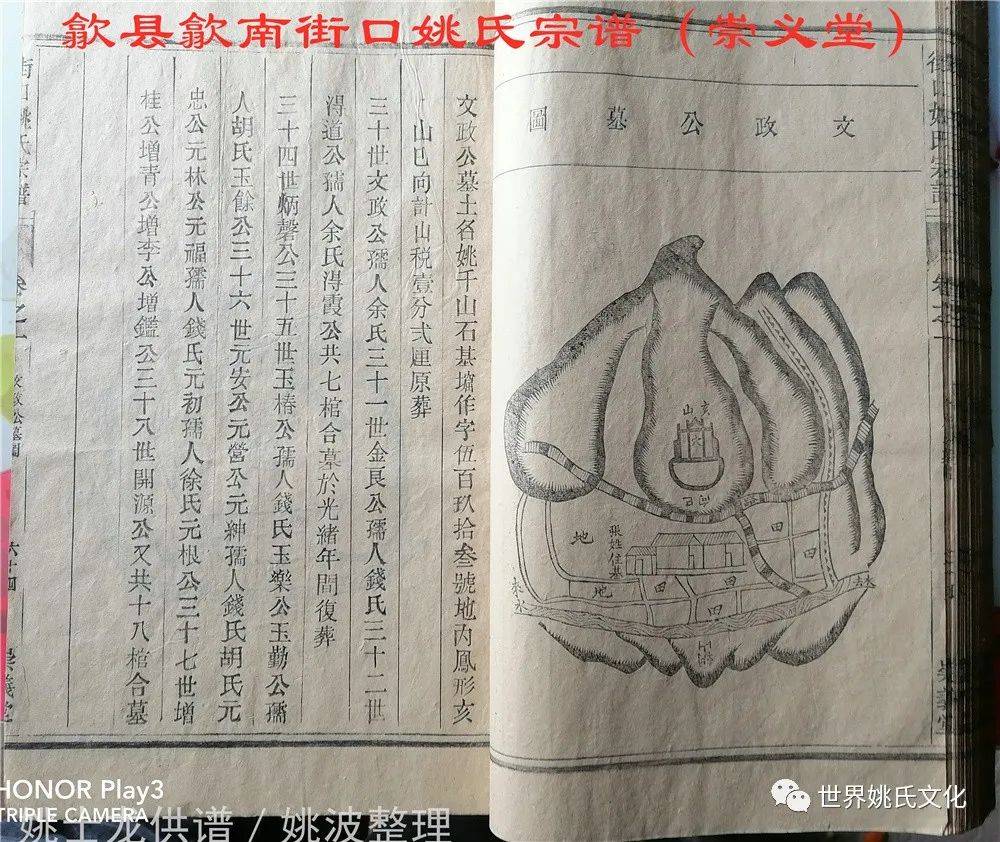 歙县歙南街口姚氏宗谱（崇义堂）
文政公墓圖
亥山
巳向
張姓住基
地
地
田
田
田
田
來水
去水
文政公墓土名姚千山石基塝作字伍百玖拾叁號地內鳳形亥
山巳向計山税壹分弍厘原葬
三十世文政公孺人余氏三十一世金艮公孺人錢氏三十二世
淂道公孺人余氏淂霞公共七棺合墓於光緒年間復葬
三十四世炳磬公三十五世玉椿公孺人錢氏玉樂公玉勤公孺
人胡氏玉餘公三十六世元安公元營公元紳孺人錢氏胡氏元
忠公元林公元福孺人錢氏元初孺人徐氏元根公三十七世增
桂公增青公增李公增鑑公三十八世開源公又共十八棺合墓
街口姚氏宗譜
卷之一
文政公墓圖
六十四
崇義堂
HONOR Play3
TRIPLE CAMERA
姚上龙供谱/姚波整理
世界姚氏文化